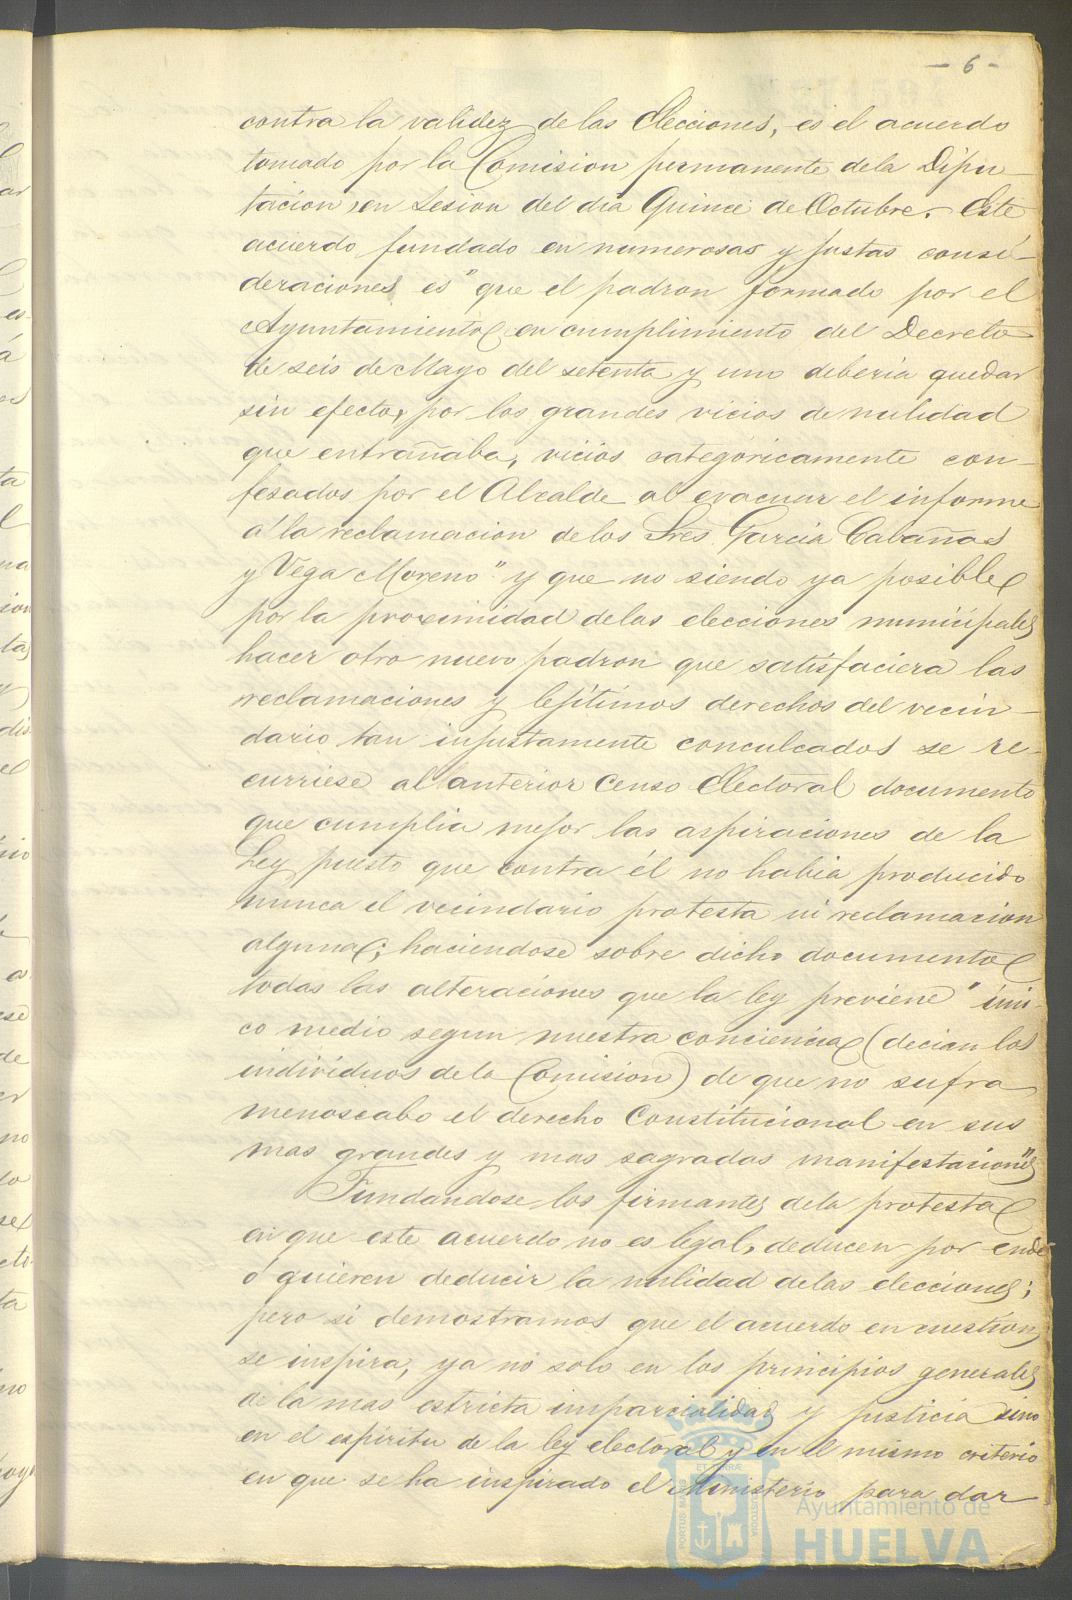 - 6 -
contra la validez de las Elecciones, es el acuerdo
tomado por la Comision permanente dela Dipu-
tacion, en sesion del dia Quince de Octubre. Este
acuerdo fundado en numerosas y justas consi-
deraciones es "que el padron formado por el
Ayuntamiento en cumplimiento del Decreto
de seis de Mayo del setenta y uno deberia quedar
sin efecto, por los grandes vicios de nulidad
que entrañaba, vicios categóricamente con-
fesados por el Alcalde al evacuar el informe
a la reclamacion de los Sres. Garcia Cabañas
y Vega Moreno" y que no siendo ya posible
por la proximidad de las elecciones municipales
hacer otro nuevo padron que satisfaciera las
reclamaciones y lejítimos derechos del vecin-
dario tan injustamente conculcados se re-
curriese al anterior Censo Electoral documento
que cumplia mejor las aspiraciones de la
Ley puesto que contra él no habia producido
nunca el vecindario protesta ni reclamacion
alguna; haciendose sobre dicho documento
todas las alteraciones que la ley previene "úni-
co medio segun nuestra conciencia (decian los
individuos de la Comision) de que no sufra
menoscabo el derecho Constitucional en sus
mas grandes y mas sagradas manifestaciones"
Fundandose los firmantes dela protesta
en que este acuerdo no es legal, deducen por ende
ó quieren deducir la nulidad delas elecciones;
pero si demostramos que el acuerdo en cuestion
se inspira, ya no solo en los principios generales
de la mas estricta imparcialidad y justicia sino
en el espiritu de la ley electoral y en el mismo criterio
en que se ha inspirado el Ministerio para dar
Ayuntamiento de
HUELVA